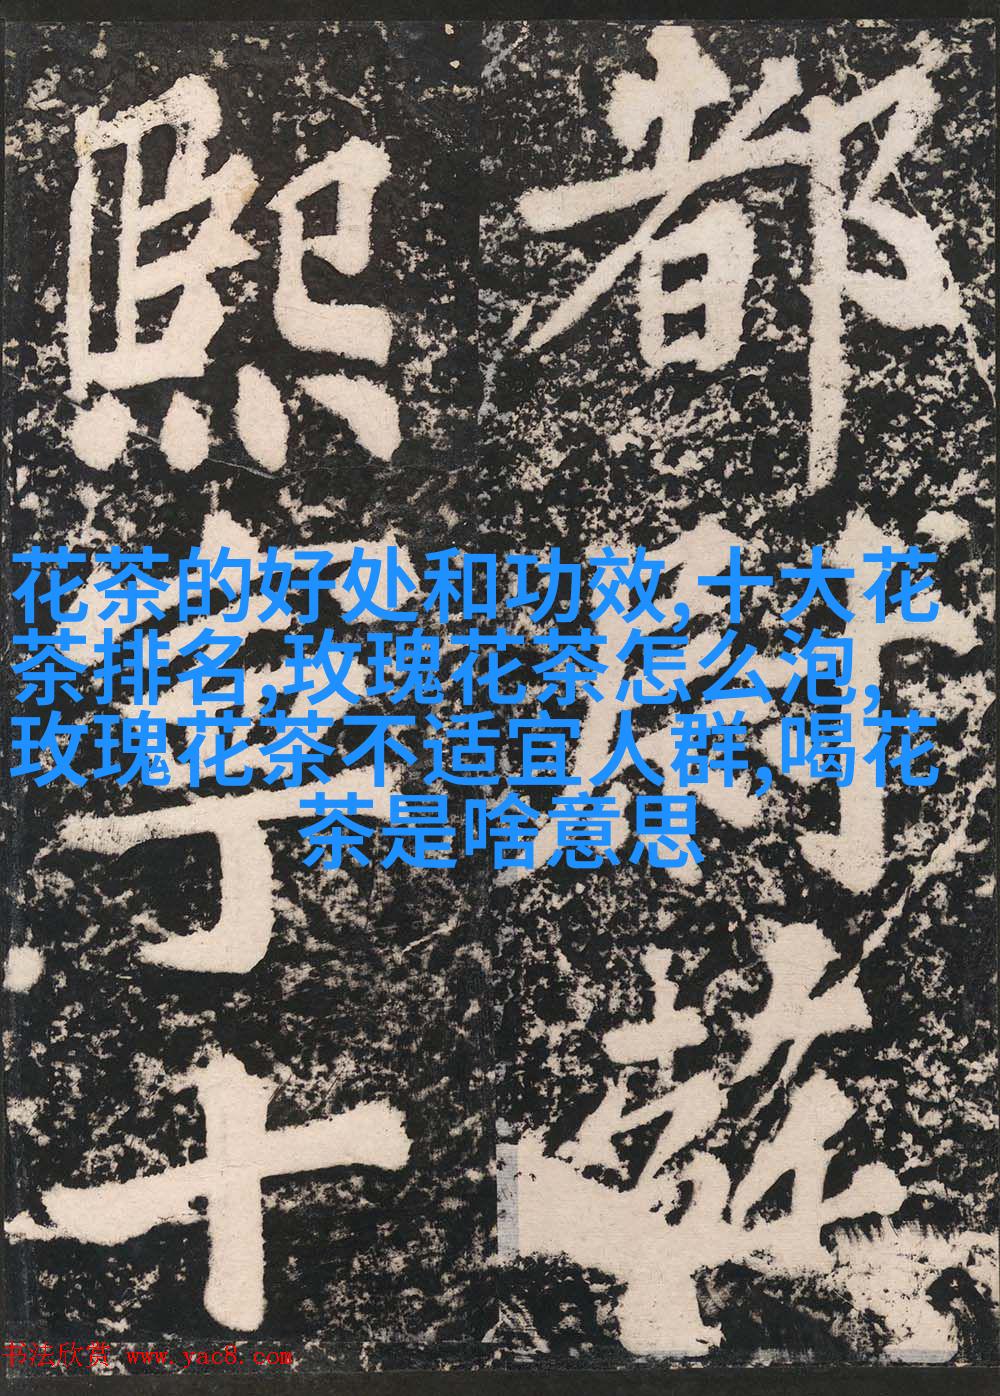 都
熙寧十
花茶的好处和功效,十大花
茶排名,玫瑰花茶怎么泡,
玫瑰花茶不适宜人群,喝花
茶是啥意思
书法欣赏 www.yac8.com